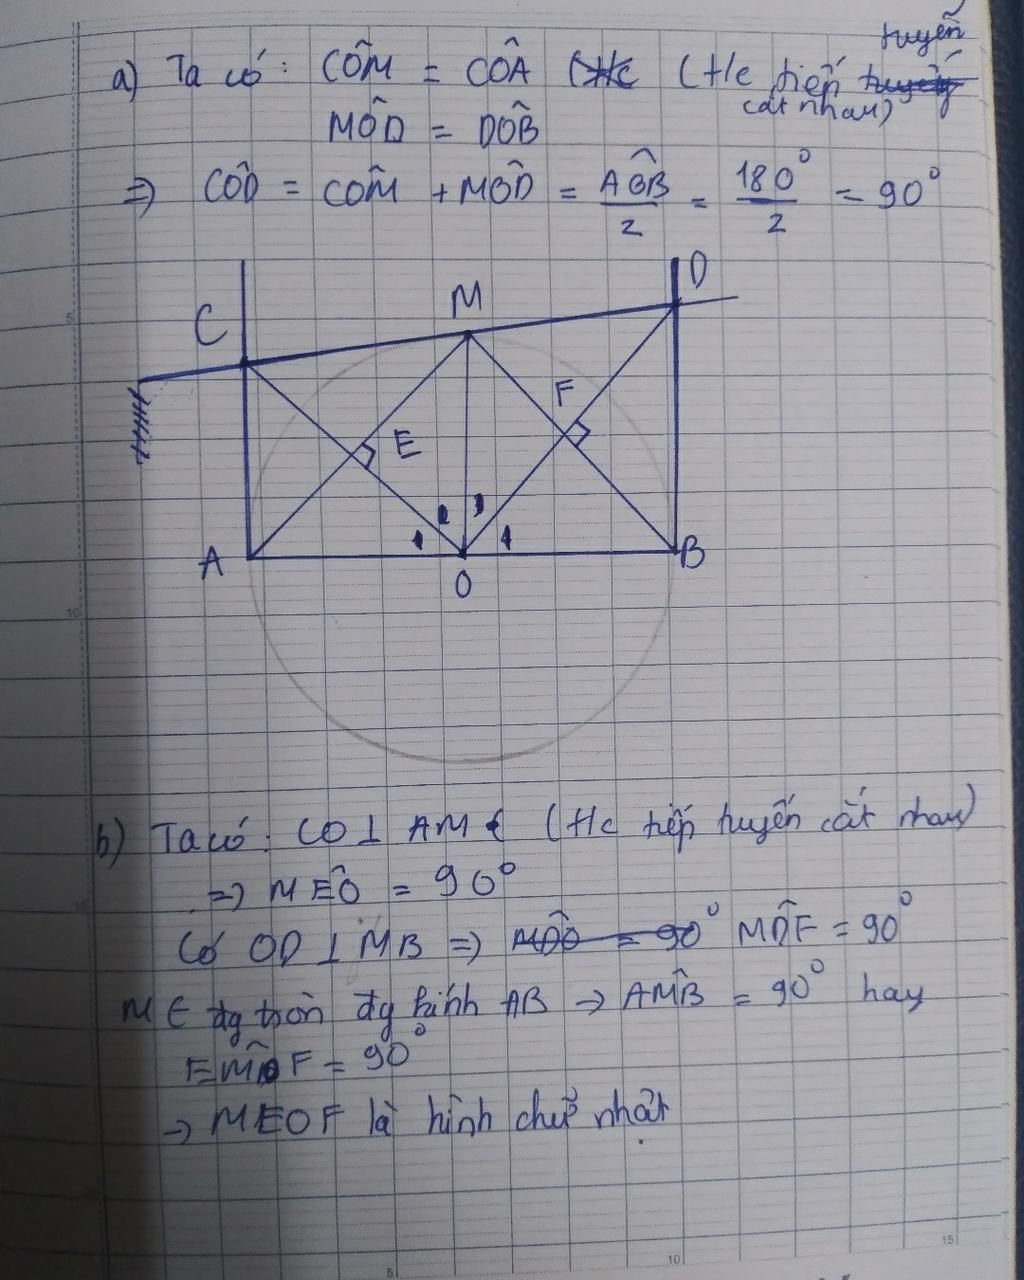 tuyến
a) Ta có: CÔM = CÔA (t/c tiếp tuyến
cắt nhau)
MÔD = DÔB
=> CÔD = CÔM + MÔD = AÔB/2 = 180°/2 = 90°
D
M
C
F
E
1 2 3 4
A O B
b) Ta có: CO ⊥ AM (t/c tiếp tuyến cắt nhau)
=> MÊO = 90°
Có OD ⊥ MB => MDO = 90° MD̂F = 90°
M ∈ đg tròn đg kính AB → AM̂B = 90° hay
EM̂F = 90°
→ MEOF là hình chữ nhật.
5
10
5
10
15